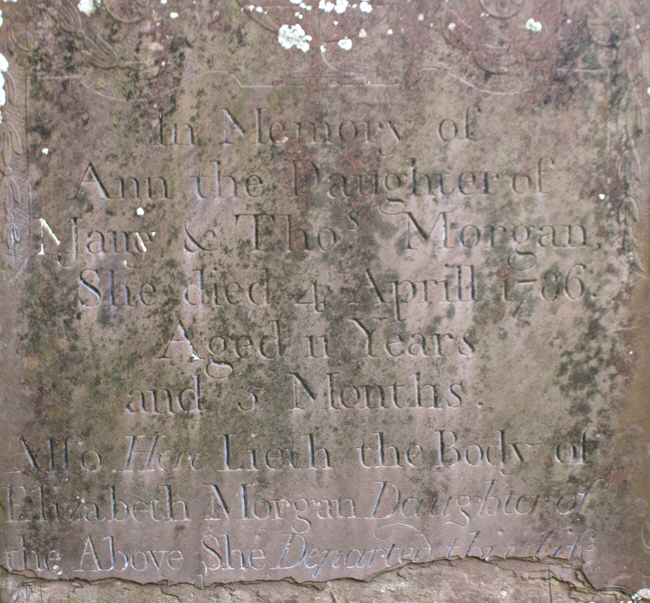 In Memory of
Ann the Daughter of
Mary & Thoˢ Morgan,
She died 4 Aprill 1786.
Aged 11 Years
and 3 Months.
Alſo Here Lieth the Body of
Elizabeth Morgan Daughter of
the Above She Departed this life